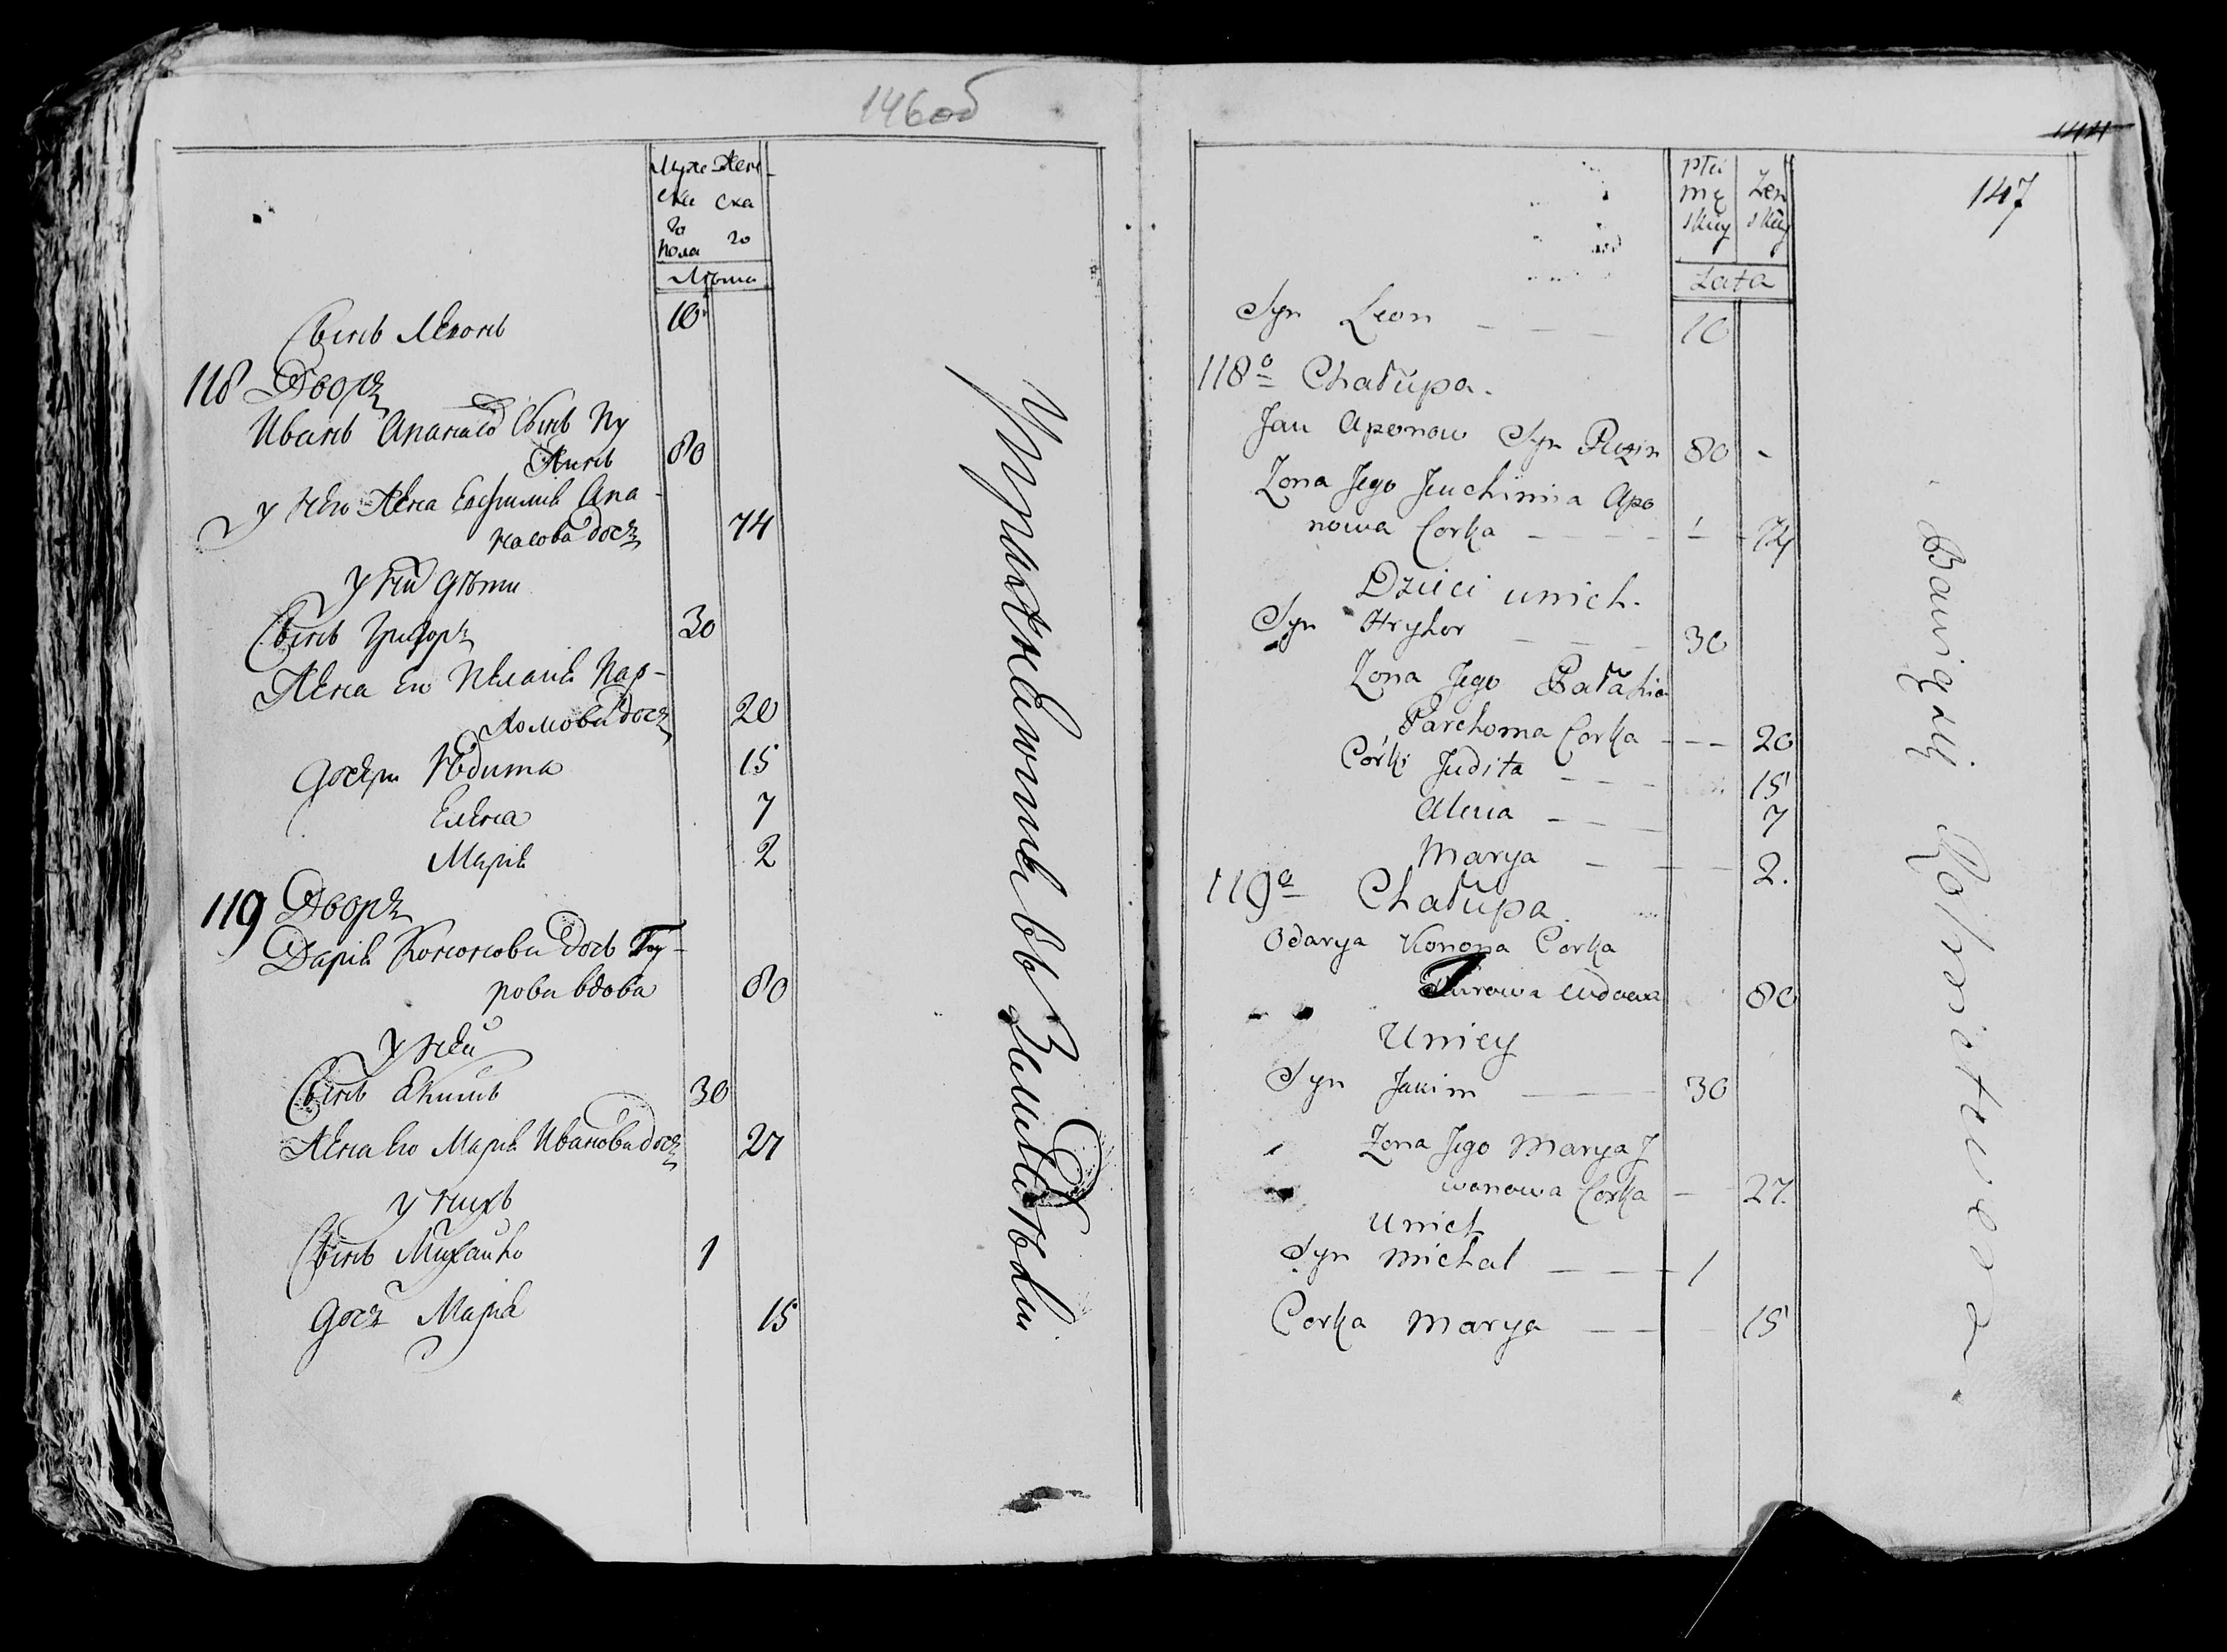 146об
Муже Жен
ска ска
го го
пола
Лѣта
Сынъ Леконъ 10
118 Дворъ
Иванъ Апанасов Сынъ Пу
жинъ 80
у него Жена Евфимиѣ Апа-
насова дочь 74
у них дѣти
Сынъ Григоръ 30
Жена Ево Пелагиѣ Пар-
хомова дочь 20
дочери Юдита 15
Елена 7
Мариѣ 2
119 Дворъ
Дариѣ Кононова дочь Ту-
рова вдова 80
у ней
Сынъ Якимъ 30
Жена Ево Мариѣ Иванова дочь 27
у нихъ
Сынъ Михайко 1
дочь Мариѣ 15
Упражняютъ въ Земледѣлии
144
147
płci
mę żen
skiey skiey
Lata
Syn Leon 10
118º Chałupa.
Jan Aponow Syn Puzin 80
Zona Jego Jeuchimia Apo
nowa Corka 74
Dzieci unich.
Syn Hryhor 30
Zona Jego Pałahia
Parchoma Corka 20
Córki Judita 15
Alena 7
Marya 2.
119º Chałupa
Odarya Konona Corka
Turowa wdowa 80
Uniey
Syn Jakim 30
Zona Jego Marya J
wanowa Corka 27.
Unich
Syn Michał 1
Corka Marya 15
Bawią się Rolnictwem.